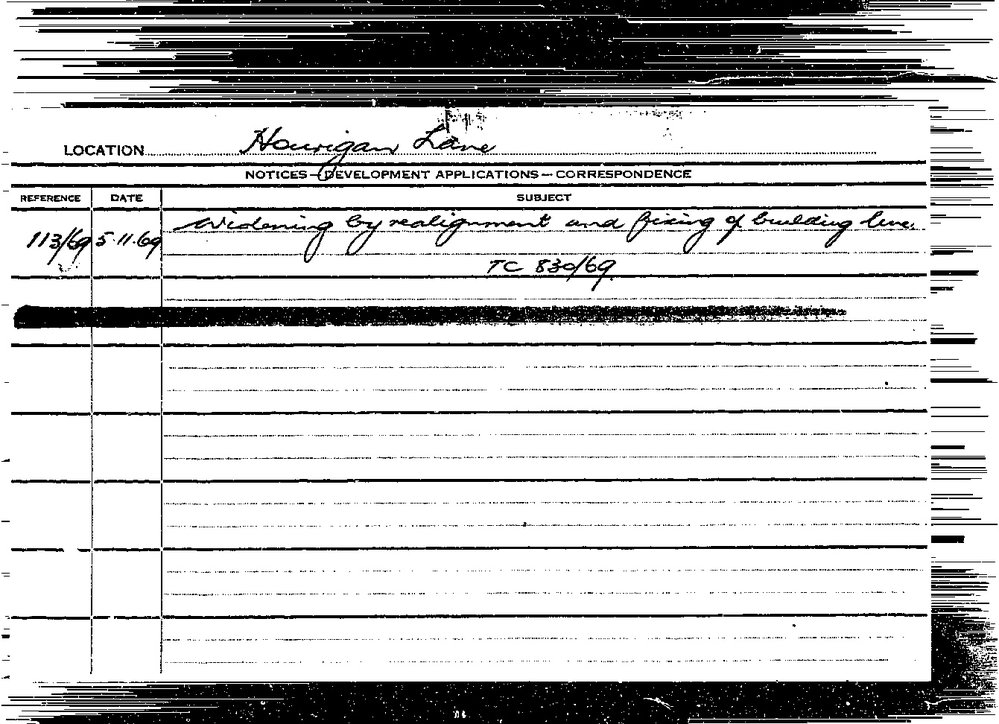 LOCATION Hourigan Lane
NOTICES—DEVELOPMENT APPLICATIONS—CORRESPONDENCE
REFERENCE DATE SUBJECT
113/69 5.11.69 Widening by realignment and fixing of building line.
TC 830/69.